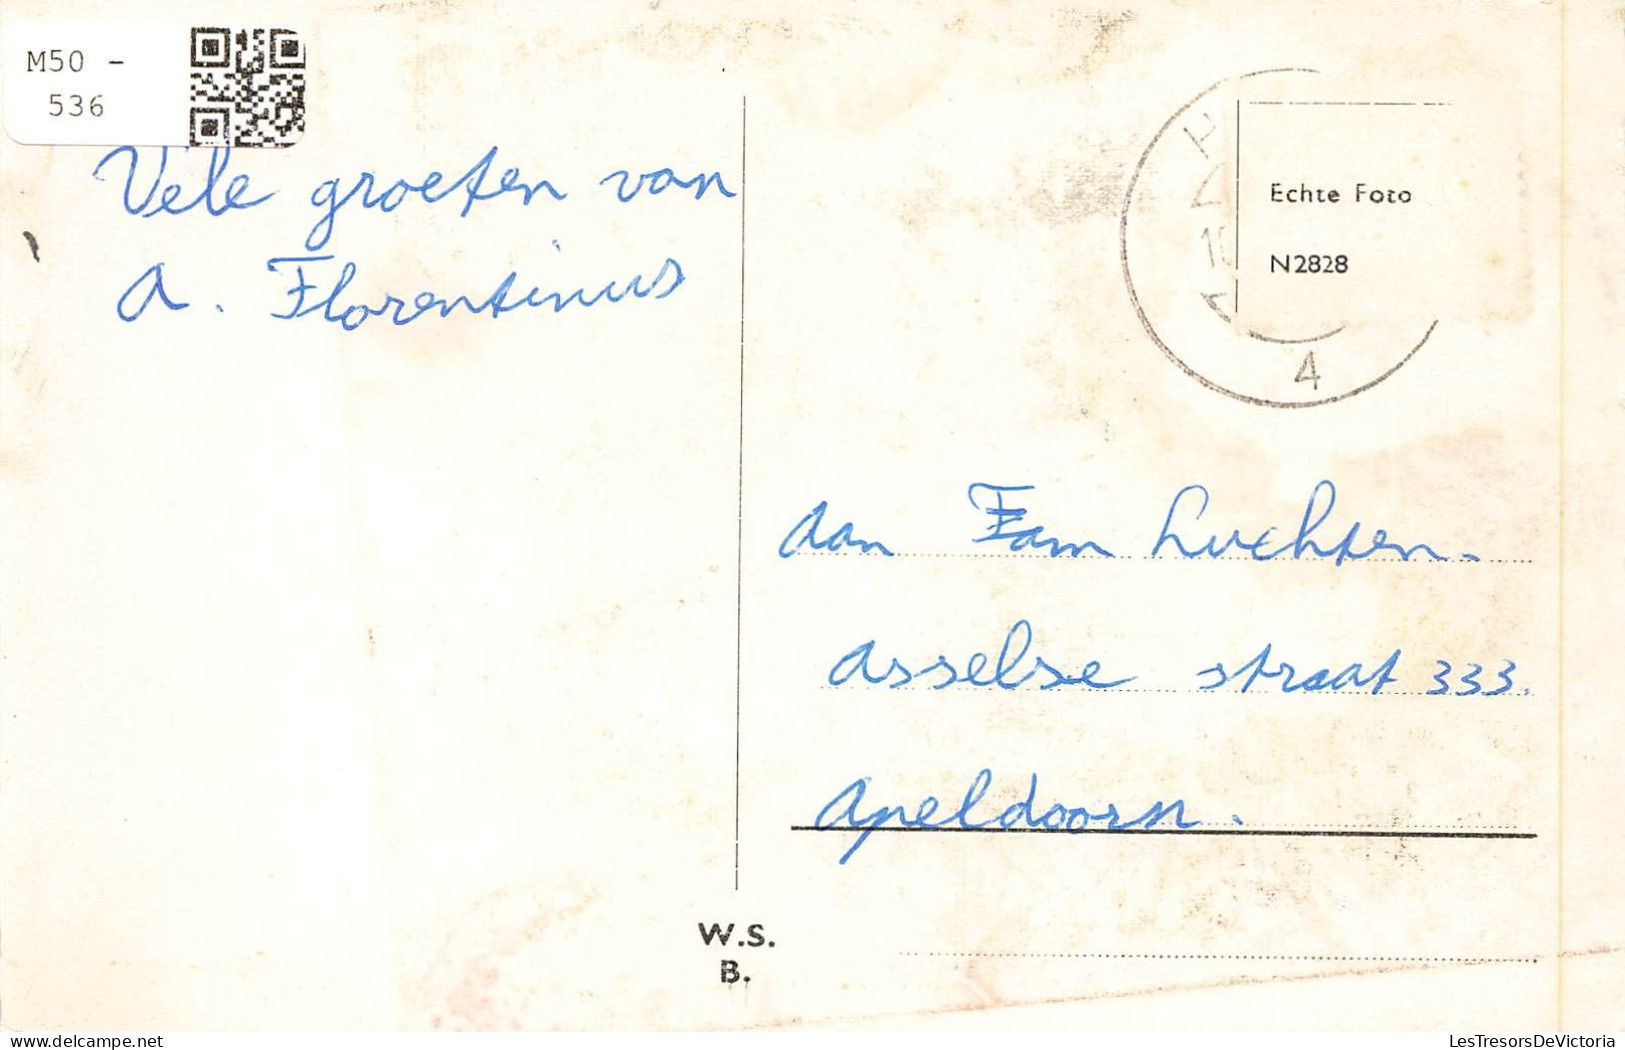 M50 -
536
Vele groeten van
A. Florentinus
Echte Foto
N2828
4
aan Fam Luchten.
Asselse straat 333.
Apeldoorn.
W.S.
B.
delcampe.net
LesTresorsDeVictoria